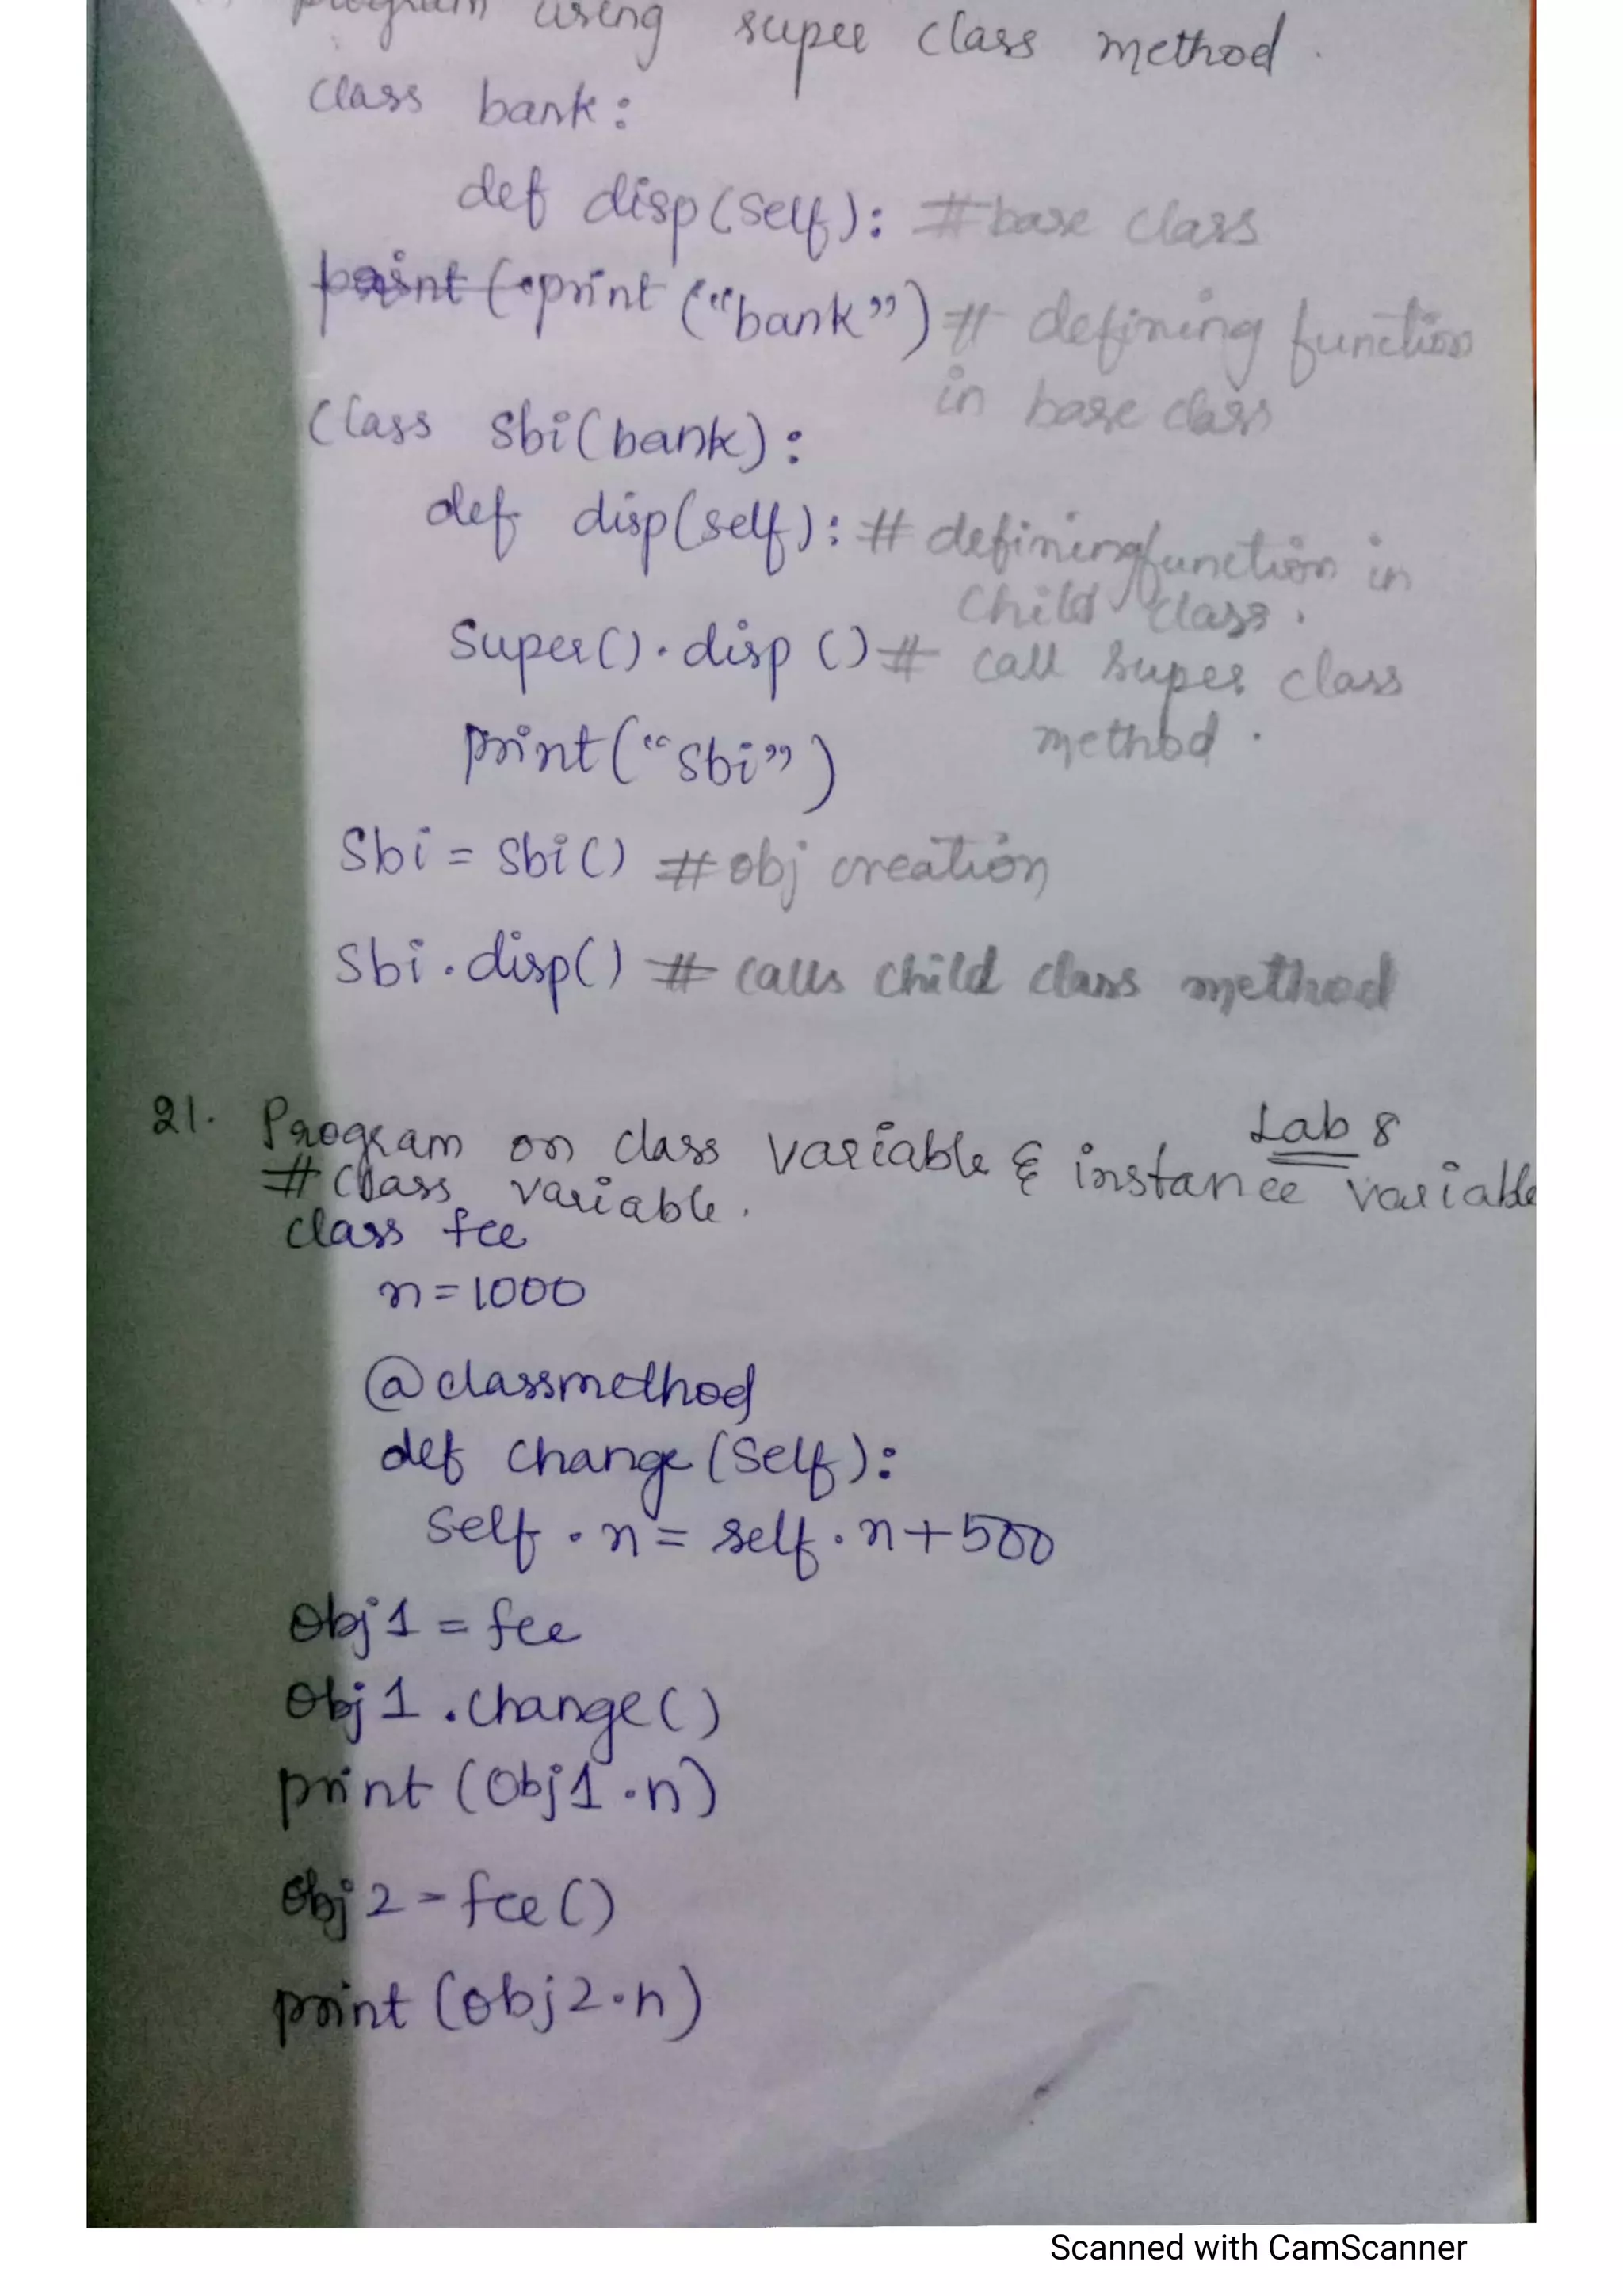 program using super class method.
class bank:
def disp(self): #base class
print("bank") # defining function
in base class
class sbi(bank):
def disp(self): # defining function in
child class.
Super().disp() # call super class
method.
print("sbi")
Sbi = sbi() #obj creation
Sbi.disp() # calls child class method
Lab 8
21. Program on class variable & instance variable
# class variable.
class fee
n=1000
@classmethod
def change(self):
self.n = self.n+500
obj1 = fee
obj1.change()
print(obj1.n)
obj2 = fee()
print(obj2.n)
Scanned with CamScanner